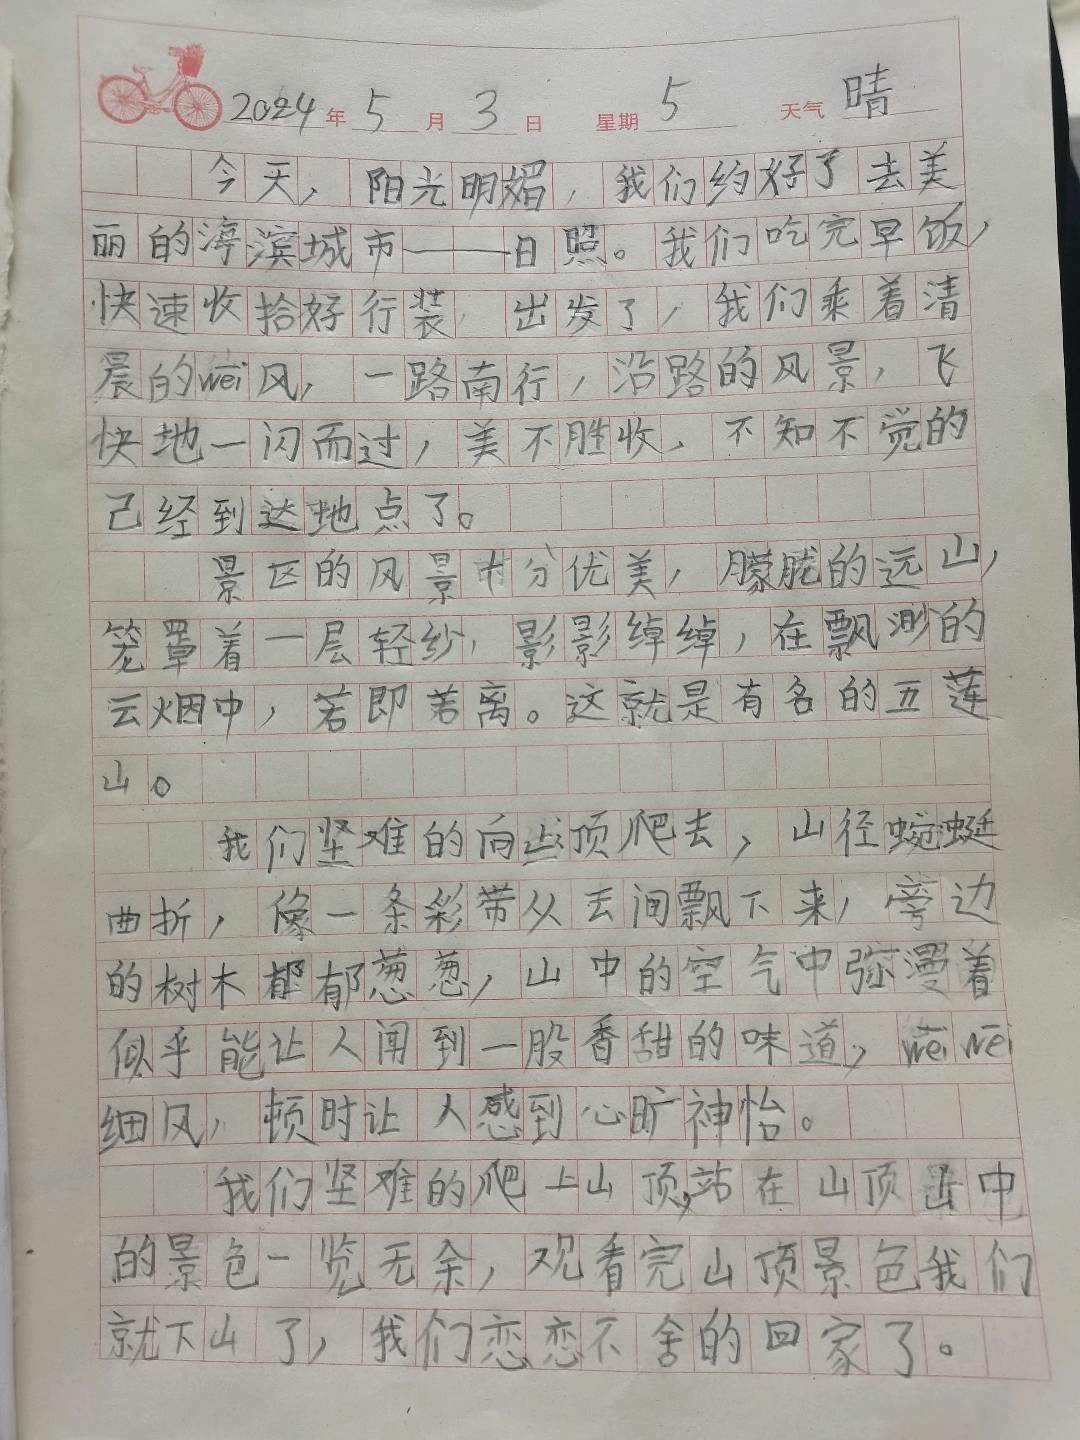 2024年 5月 3日 星期 5 天气 晴
今天，阳光明媚，我们约好了去美
丽的海滨城市——日照。我们吃完早饭，
快速收拾好行装，出发了，我们乘着清
晨的wēi风，一路南行，沿路的风景，飞
快地一闪而过，美不胜收，不知不觉的
已经到达地点了。
景区的风景十分优美，朦胧的远山，
笼罩着一层轻纱，影影绰绰，在飘渺的
云烟中，若即若离。这就是有名的五莲
山。
我们坚难的向山顶爬去，山径蜿蜒
曲折，像一条彩带从云间飘下来，旁边
的树木郁郁葱葱，山中的空气中弥漫着
似乎能让人闻到一股香甜的味道，wēi wēi
细风，顿时让人感到心旷神怡。
我们坚难的爬上山顶，站在山顶山中
的景色一览无余，观看完山顶景色我们
就下山了，我们恋恋不舍的回家了。